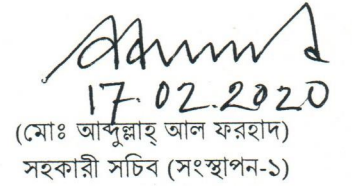 17.02.2020
(মোঃ আব্দুল্লাহ্ আল ফরহাদ)
সহকারী সচিব (সংস্থাপন-১)